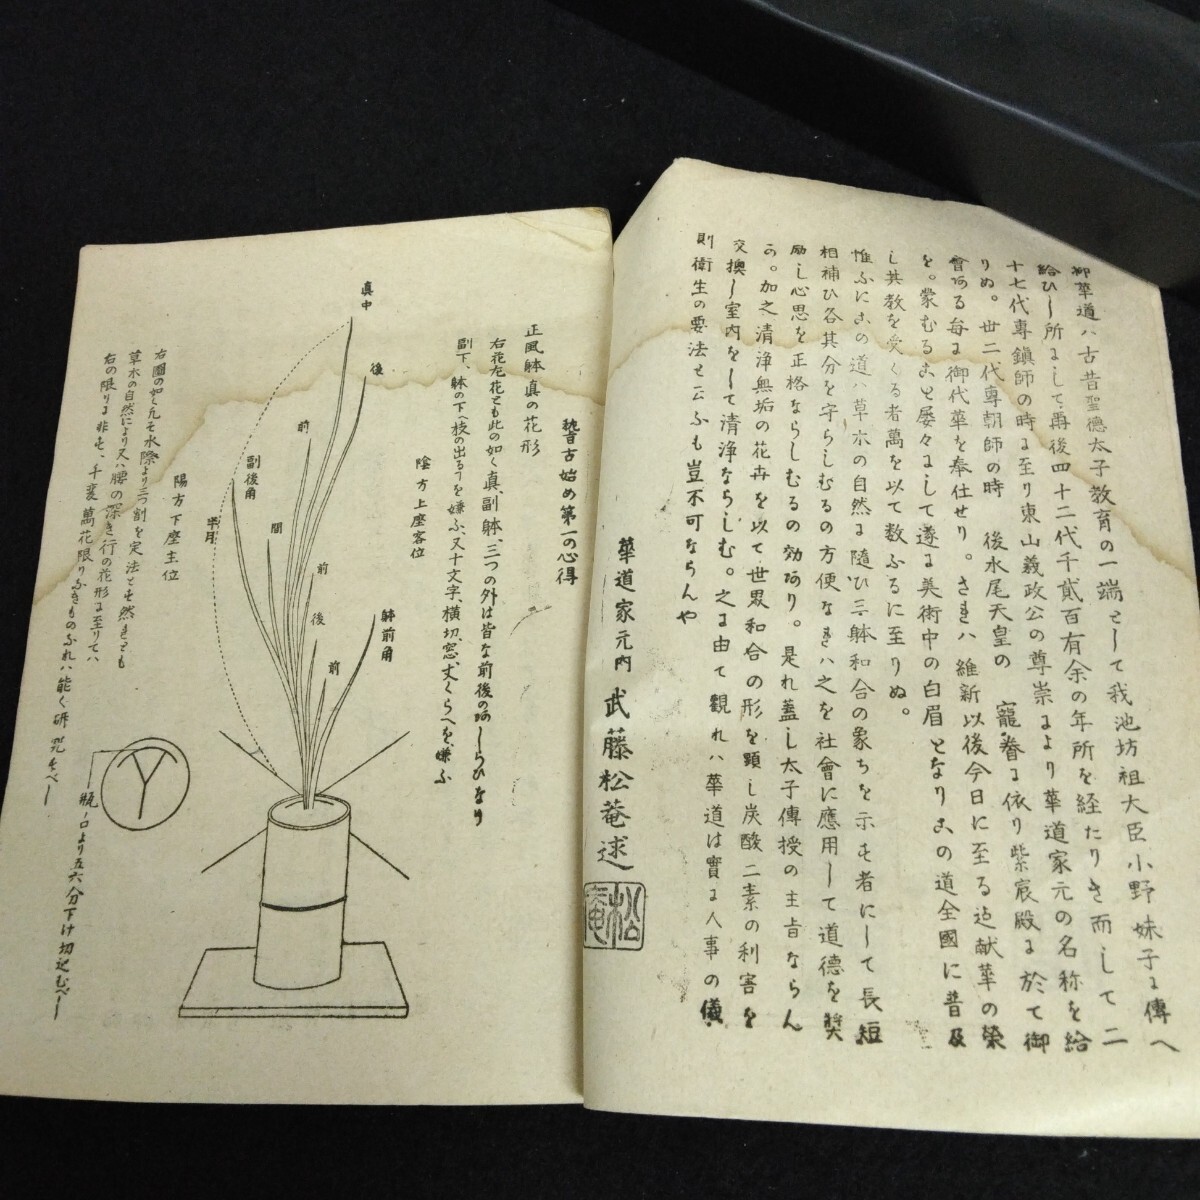 抑華道ハ古昔聖德太子教育の一端として我池坊祖大臣小野妹子に傳へ
給ひし所にして再後四十二代千貳百有余の年所を経たりき而して二
十七代専鎮師の時に至り東山義政公の尊崇により華道家元の名称を給
りぬ。丗二代専朝師の時 後水尾天皇の 寵眷に依り紫宸殿に於て御
會ある毎に御代華を奉仕せり。されハ維新以後今日に至る迄献華の榮
を。蒙むること屡々にして遂に美術中の白眉となりこの道全國に普及
し其教を受くる者萬を以て数ふるに至りぬ。
惟ふにこの道ハ草木の自然に隨ひ三躰和合の象ちを示す者にして長短
相補ひ各其分を守らしむるの方便なれハ之を社會に應用して道德を奬
励し心思を正格ならしむるの効あり。是れ蓋し太子傳授の主旨ならん
か。加之清浄無垢の花卉を以て世界和合の形を顕し炭酸二素の利害を
交換し室内をして清浄ならしむ。之に由て觀れハ華道は實に人事の儀
則衛生の要法と云ふも豈不可ならんや
華道家元内 武藤松菴述
松菴
稽古始め第一の心得
正風躰真の花形
右花左花とも此の如く真、副、躰、三つの外は皆な前後のあしらひなり
副下、躰の下へ枝の出るヿを嫌ふ、又十文字、横切、窓、丈くらへを、嫌ふ
陰方上座客位
真中
後
前
副後角
半月
間
前
後
前
躰前角
陽方下座主位
右圖の如く凡そ水際より三つ割を定法とす然れとも
草木の自然により又ハ腰の深き行の花形に至りてハ
右の限りに非す、千変萬花限りなきものなれハ能く研究すべし
瓶ノ口より五六分下け切込むべし